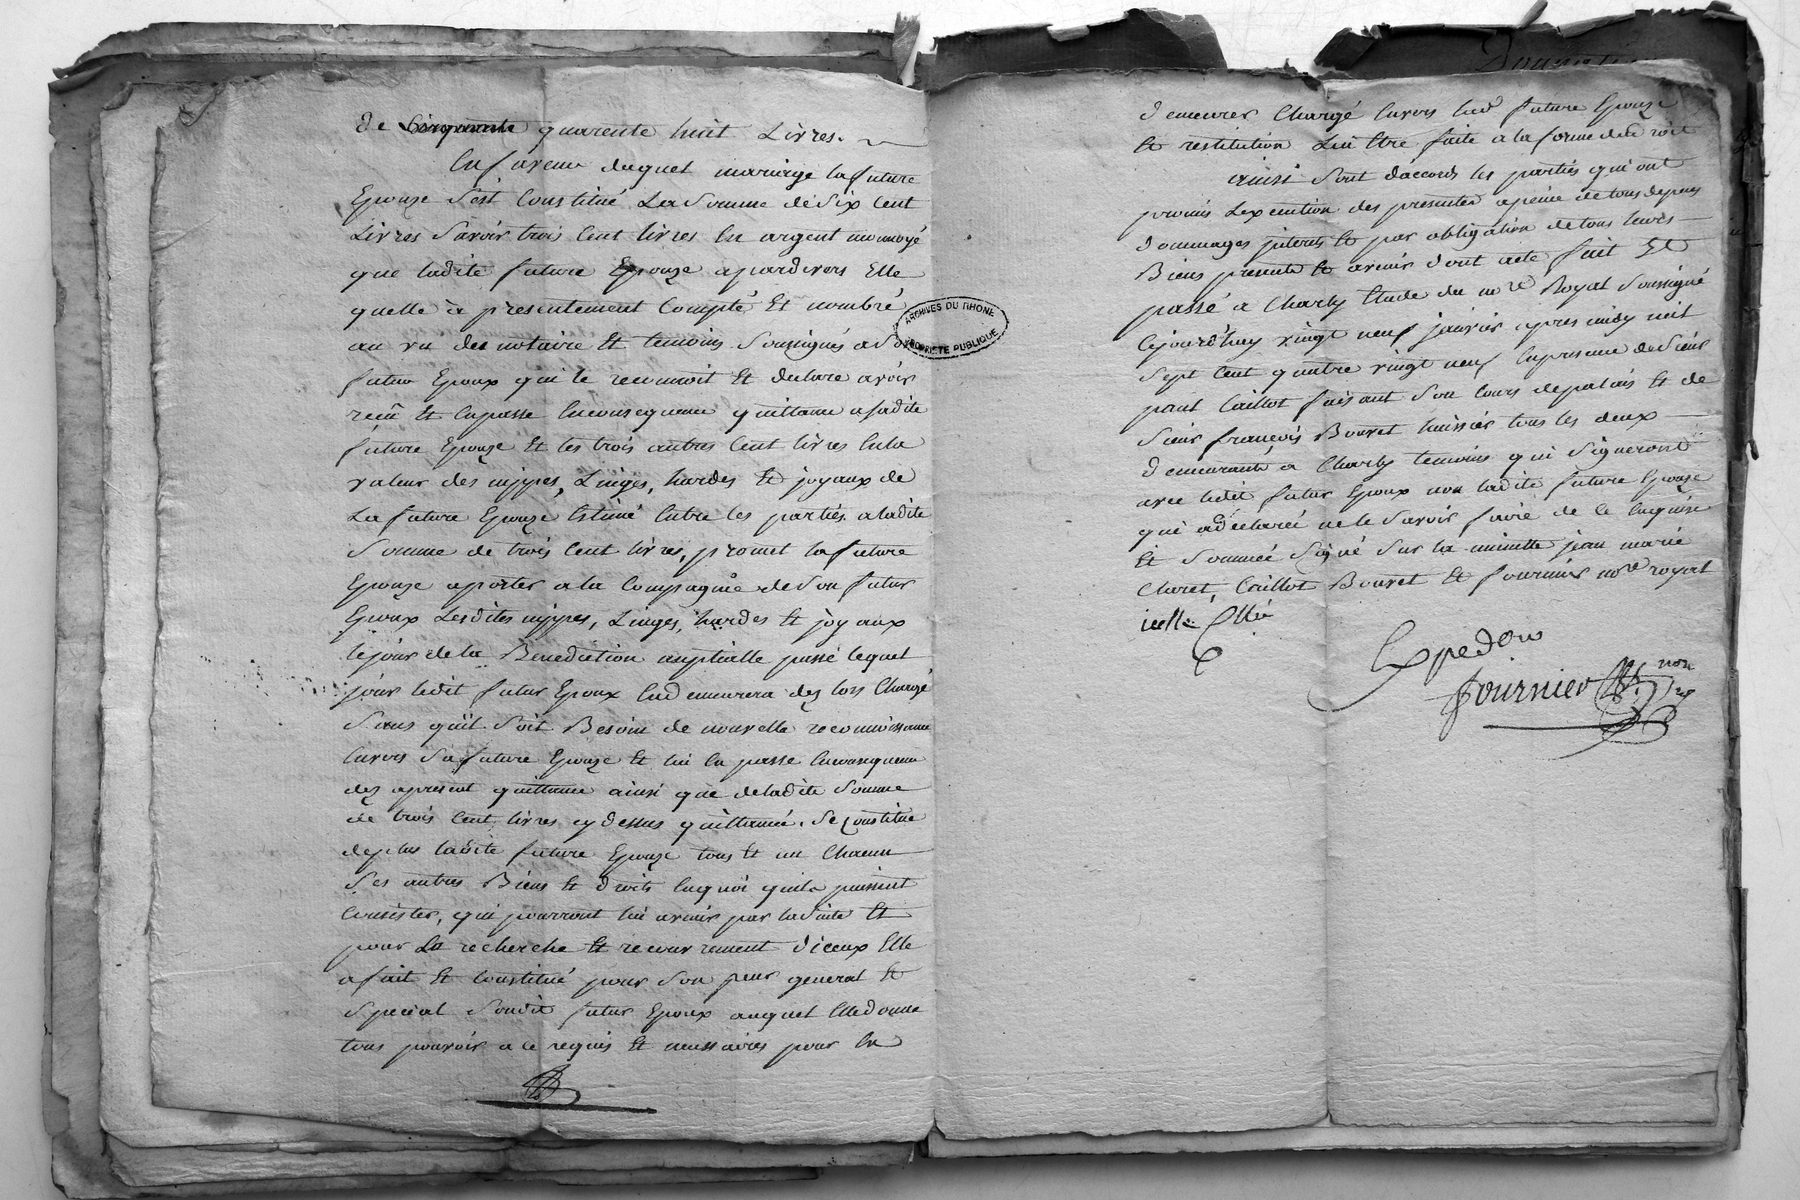 de Cinquante quarente huit Livres.
En faveur duquel mariage la future
Epouze s'est Constitué La Somme de Six Cent
Livres Savoir trois Cent livres En argent monnoyé
que ladite future Epouze a pardevers Elle
quelle à présentement Compté Et nombré
au vu des notaire Et temoins Soussignés a Son
futur Epoux qui le reconnoit Et declare avoir
recu Et En passe Enconsequence quittance a sadite
future Epouze Et les trois autres Cent livres Enla
valeur des nippes, Linges, hardes Et joyaux de
La future Epouze Estimé Entre les parties a ladite
Somme de trois Cent livres, promet la future
Epouze aporter a la Compagnie de Son futur
Epoux Lesdites nippes, Linges, hardes Et joyaux
le jour de la Benediction nuptialle passé lequel
jour ledit futur Epoux En demeurera des lors Chargé
Sans quil Soit Besoin de nouvelle reconnoissance
Envers Sa future Epouze Et lui En passe Enconsequence
dez apresent quittance ainsi que deladite Somme
de trois Cent livres cy dessus quittancée. Se Constitue
deplus ladite future Epouze tous Et un Chacun
Ses autres Biens Et droits Enquoi quils puissent
Consister, qui pourront lui avenir par la Suite Et
pour La recherche Et recouvrement diceux Elle
a fait Et Constitué pour Son pcur general Et
Special Sondit futur Epoux auquel Elle donne
tous pouvoir a ce requis Et necessaires pour En
ARCHIVES DU RHONE
PROPRIETE PUBLIQUE
demeurer Chargé Envers lad future Epouze
Et restitution Lui Etre faite a la forme du droit
ainsi Sont daccords les parties qui ont
promis Lexecution des presentes apeine de tous depens
dommages interets Et par obligation de tous leurs
Biens presents Et avenir dont acte fait Et
passé a Charly Etude du nore Royal Soussigné
Cejourd'huy vingt neuf janvier apres midy mil
Sept Cent quatre vingt neuf Enpresence de Sieur
paul Caillot faisant Son Cours de palais Et de
Sieur françois Bouvet huissier tous les deux
demeurants a Charly temoins qui Signeront
avec ledit futur Epoux non ladite future Epouze
qui a déclarée ne le Savoir faire de ce Enquise
Et Sommée Signé Sur la minutte jean marie
Charet, Caillot Bouvet Et fournier nore royal
icelle Collé
Expedon
fournier